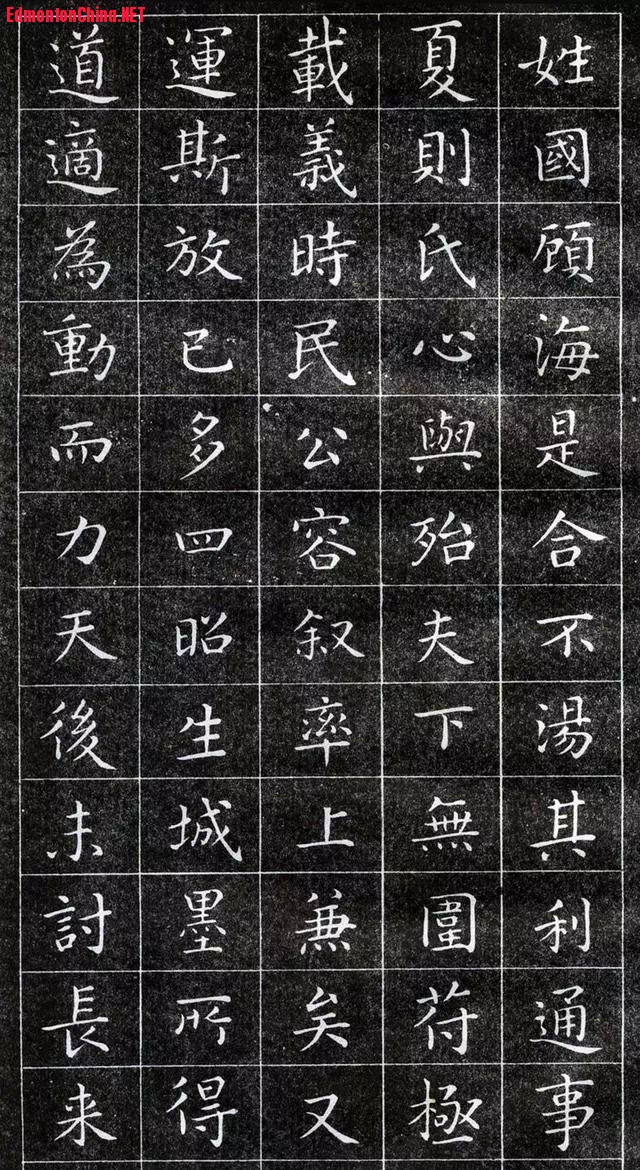 EdmontonChina.NET
姓國頋海是合不湯其利通事
夏則氏心與殆夫下無圍苻極
載義時民公容叙率上兼矣又
運斯放已多四昭生城墨所得
道適為動而力天後未討長来